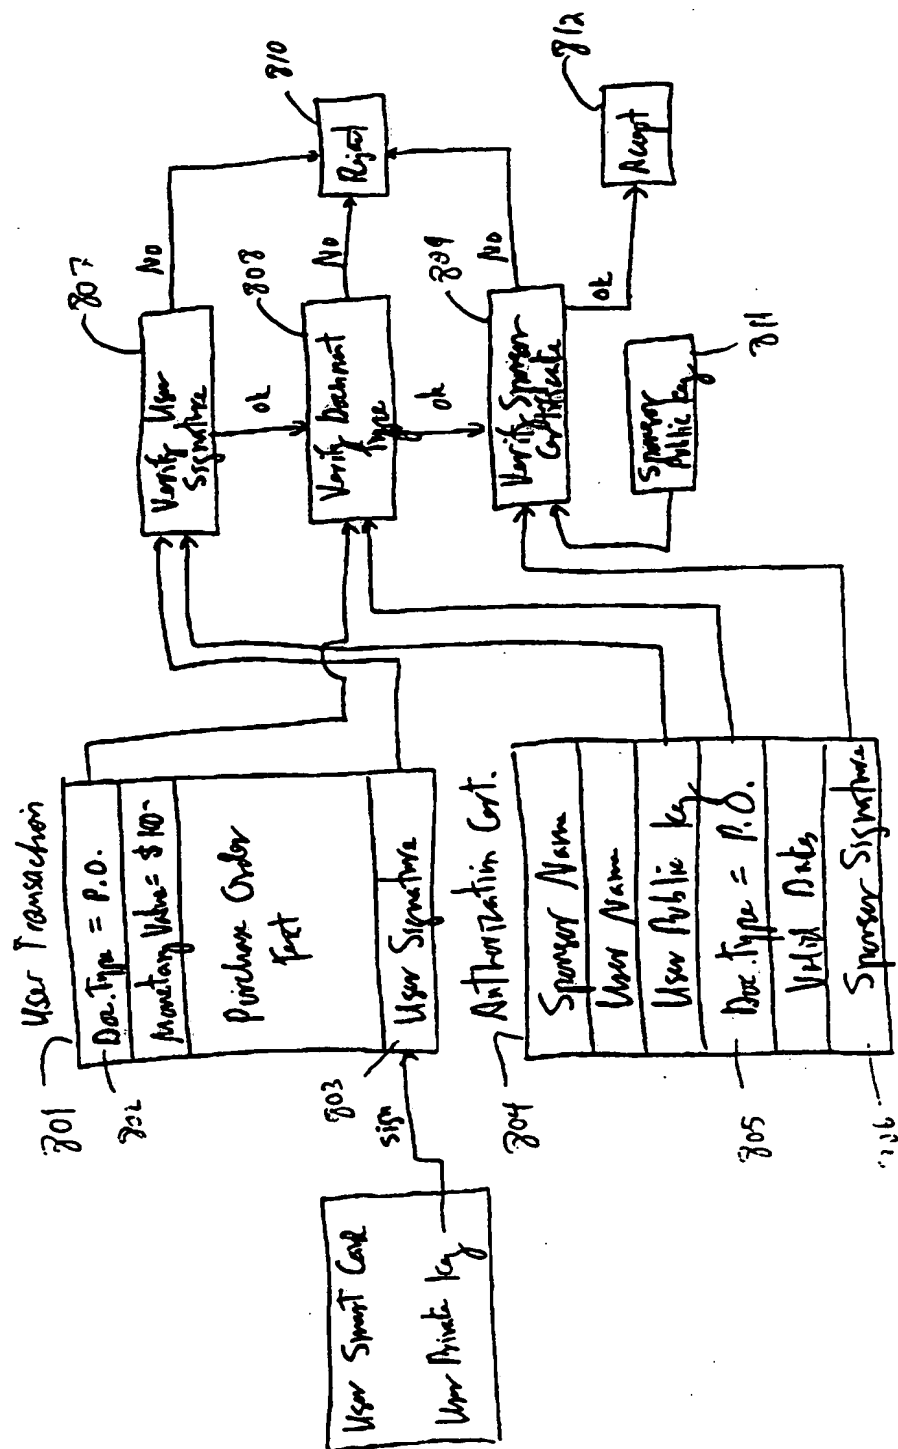 User Smart Card
User Private Key
sign
801
User Transaction
802
Doc. Type = P.O.
Monetary Value = $
Purchase Order
Text
803
User Signature
804
Authorization Cert.
Sponsor Name
User Name
User Public Key
805
Doc. Type = P.O.
Valid Dates
Sponsor Signature
807
Verify User
Signature
No
ok
808
Verify Document
Type
No
ok
809
Verify Sponsor
Certificate
No
ok
810
Reject
811
Sponsor
Public Key
812
Accept